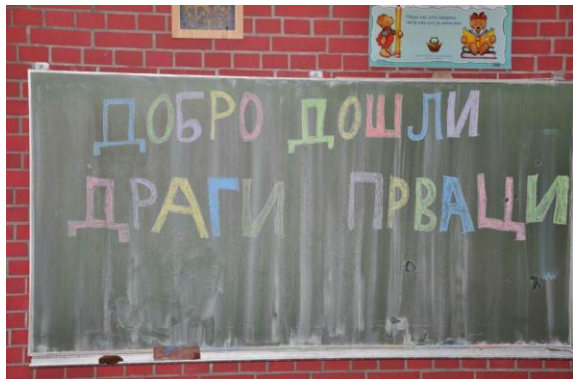 ДОБРО ДОШЛИ
ДРАГИ ПРВАЦИ